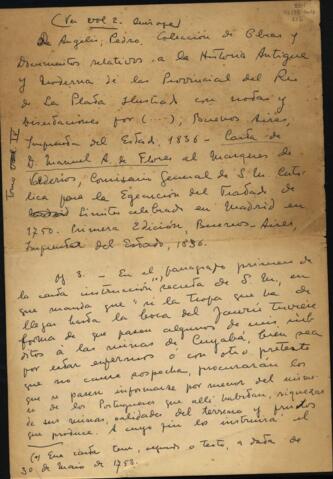 (Ver vol 2.
De Angelis, Pedro. Colección de Obras y
Documentos relativos a la Historia Antigua
y Moderna de las Provincias del Rio
de La Plata Ilustrad con notas y
Disertaciones por (...), Buenos Aires,
Imprenta del Estado, 1836 - Carta de
D. Manuel A. de Flores al Marques de
Valdelirios, Comisario General de S. M. Cató-
lica para la Ejecución del Tratado de
Limites celebrado en Madrid en
1750. Primera Edición, Buenos Aires,
Imprenta del Estado, 1836.
Pg 3. - En el (*) paragrafo primero de
la carta instrucción secreta de S. M., en
que manda que "si la tropa que va de
llegar hasta la boca del Jaurú tuviere
forma de que pasen algunos de mis súb
ditos à las minas de Cuyabá, bien sea
por estar enfermos ó con otro pretexto
que no cause sospecha, procurarán los
que si pasen informarse por menor del
de los Portugueses que alli habitan, riquezas
de sus minas, calidades del terreno y frutos
que produce. A cuyo fin los instruirá" el
(*) Que carta tem, segundo o texto, a data de
30 de Maio de 1753.
Tomo IV